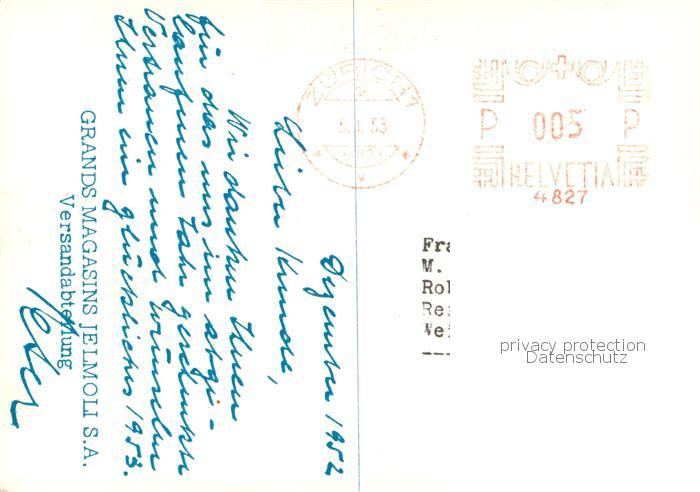 Dezember 1952
Lieber Kunde,
Wir danken Ihnen
für das uns im abge-
laufenen Jahr geschenkte
Vertrauen und wünschen
Ihnen ein glückliches 1953.
GRANDS MAGASINS JELMOLI S.A.
Versandabteilung
ZÜRICH 1
53
P 005 P
HELVETIA
4827
Fra
M.
Ro
Re
We
privacy protection
Datenschutz